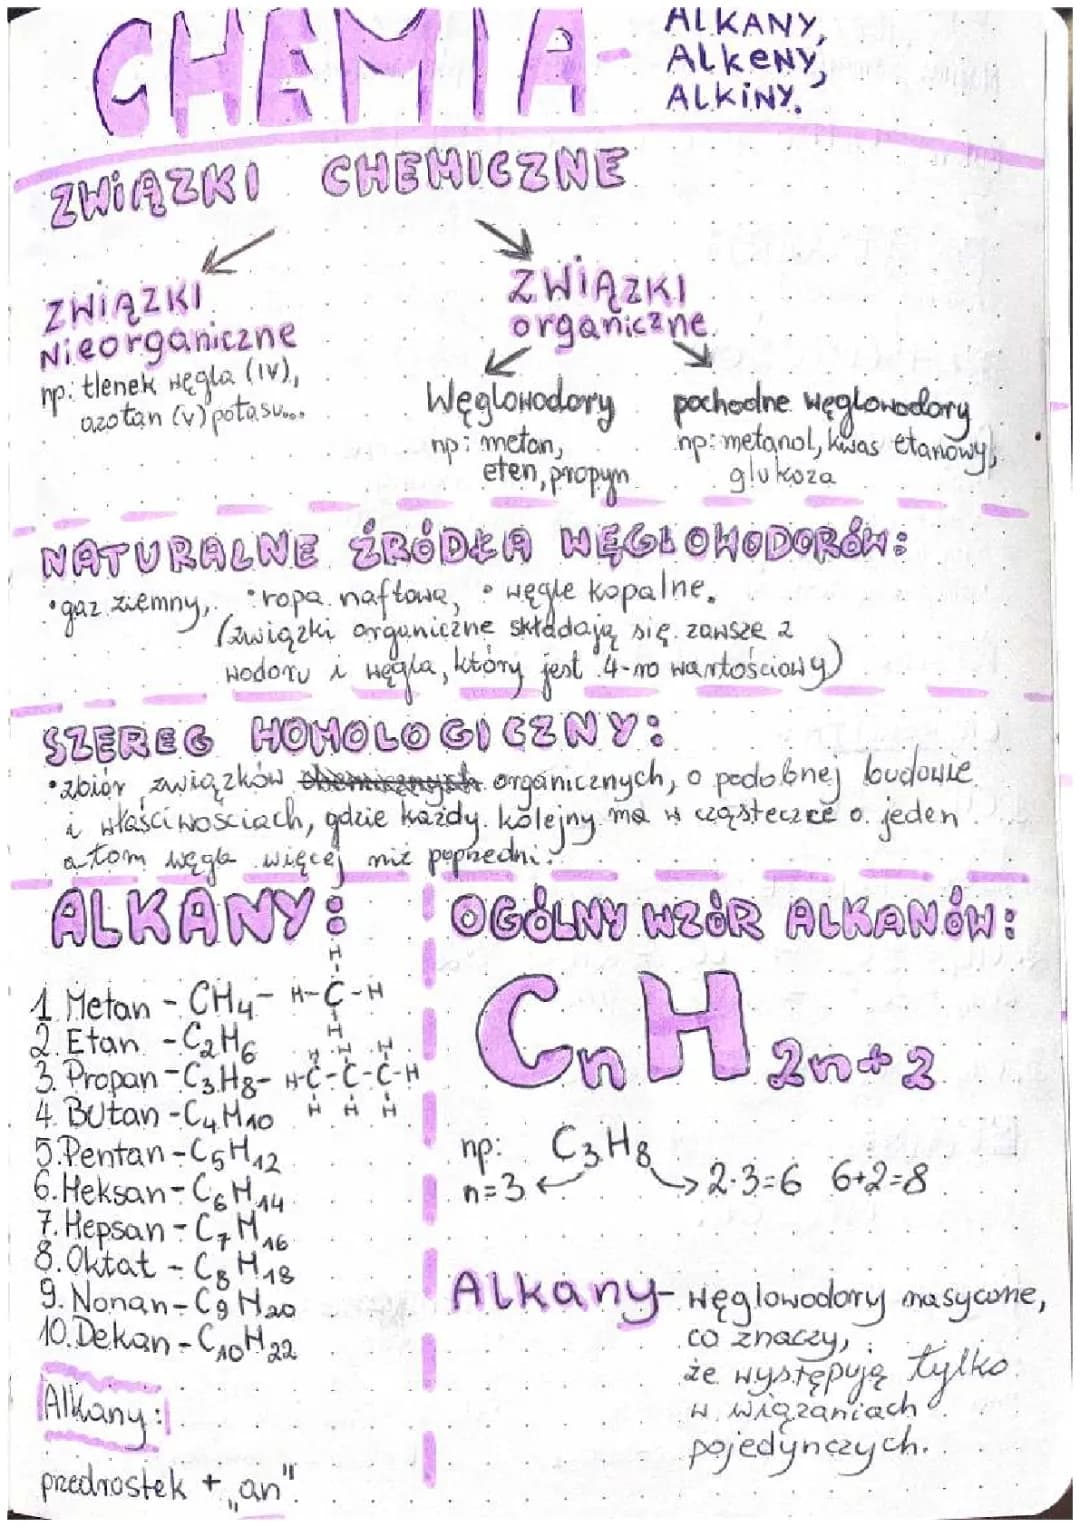 CHEMIA - ALKANY,
Alkeny,
ALKiNY.
ZWiĄZKI CHEMICZNE
ZWiĄZKI
Nieorganiczne
np: tlenek węgla (IV),
azotan (V) potasu...
ZWiĄZKI
organiczne
Węglowodory
np: metan,
eten, propyn
pochodne węglowodory
np: metanol, kwas etanowy,
glukoza
NATURALNE ŹRÓDŁA WĘGLOWODORÓW:
• gaz ziemny, • ropa naftowa, • węgle kopalne.
(związki organiczne składają się zawsze z
wodoru i węgla, który jest 4-ro wartościowy)
SZEREG HOMOLOGICZNY:
• zbiór związków chemicznych organicznych, o podobnej budowie
i właściwosciach, gdzie każdy kolejny ma w cząsteczce o jeden
atom węgla więcej niż poprzedni.
ALKANY:
1. Metan - CH4 -
H
H-C-H
H
2. Etan - C2H6
3. Propan - C3H8 -
H H H
H-C-C-C-H
H H H
4. Butan - C4H10
5. Pentan - C5H12
6. Heksan - C6H14
7. Hepsan - C7H16
8. Oktat - C8H18
9. Nonan - C9H20
10. Dekan - C10H22
Alkany:
przedrostek + „an"
OGÓLNY WZÓR ALKANÓW:
CnH2n+2
np: C3H8
n=3 2·3=6 6+2=8
Alkany - węglowodory nasycone,
co znaczy,
że występują tylko
w wiązaniach
pojedynczych.